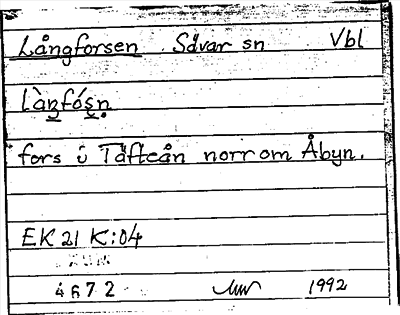 Långforsen Sävar sn Vbl
làŋfósn
fors i Täfteån norrom Åbyn.
EK 21 K:04
4672 1992